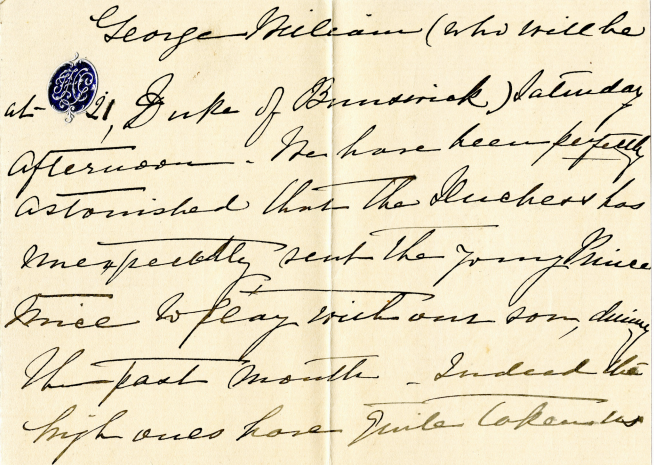 George William (who will be
at 21, Duke of Brunswick) Saturday
afternoon - We have been perfectly
astonished that the Duchess has
unexpectedly sent the young Prince
twice to play with our son, during
the past month - Indeed the
high ones have quite taken us